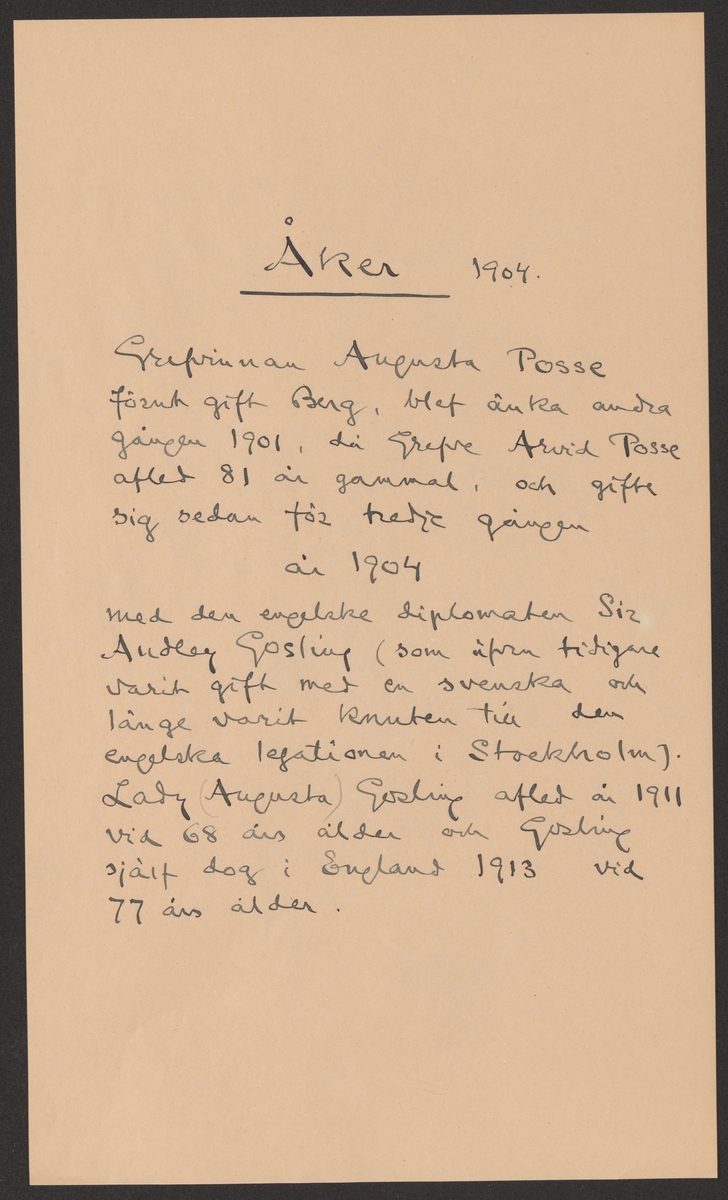 Åker 1904.
Grefvinnan Augusta Posse
förut gift Berg, blef änka andra
gången 1901, då Grefve Arvid Posse
afled 81 år gammal, och gifte
sig sedan för tredje gången
år 1904
med den engelske diplomaten Sir
Audley Gosling (som äfven tidigare
varit gift med en svenska och
länge varit knuten till den
engelska legationen i Stockholm).
Lady (Augusta) Gosling afled år 1911
vid 68 års ålder och Gosling
själf dog i England 1913 vid
77 års ålder.